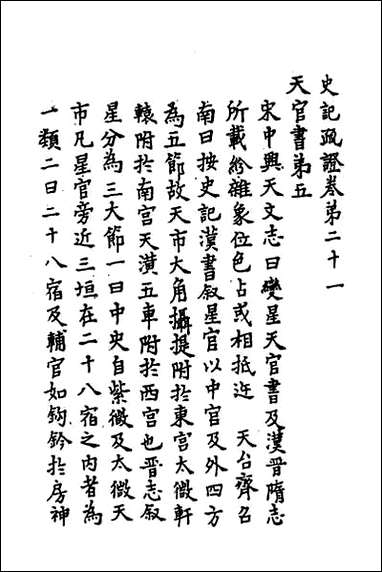 史記疏證卷第二十一
天官書第五
宋中興天文志曰變星天官書及漢晉隋志
所載紛雜象位色占或相抵迕 天台齊召
南曰按史記漢書叙星官以中官及外四方
為五節故天市大角攝提附於東宫太微軒
轅附於南宫天潢五車附於西宫也晉志叙
星分為三大節一曰中史自紫微及太微天
市凡星官旁近三垣在二十八宿之内者為
一類二曰二十八宿及輔官如鈎鈐於房神